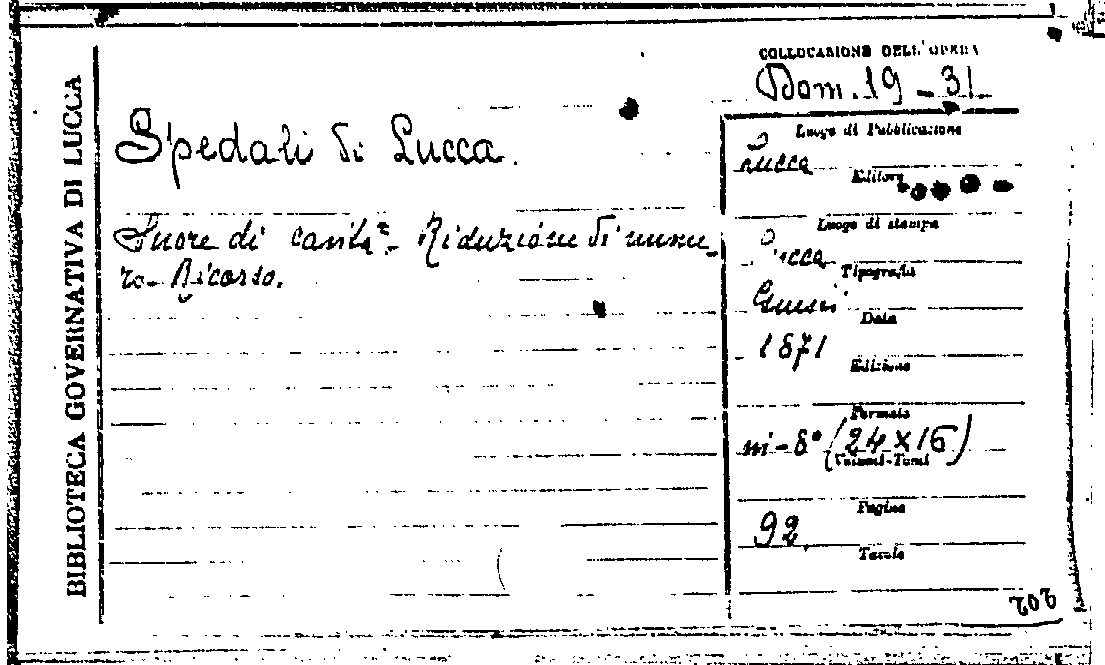 BIBLIOTECA GOVERNATIVA DI LUCCA
COLLOCAZIONE DELL'OPERA
Dom. 19 - 31
Spedali di Lucca.
Suore di carità - Riduzione di nume
ro - Ricorso.
Luogo di Pubblicazione
Lucca
Editore
Luogo di stampa
Lucca
Tipografia
Giusti
Data
1871
Edizione
Formato
in-8° (24 x 16)
Volumi-Tomi
Pagine
92
Tavole